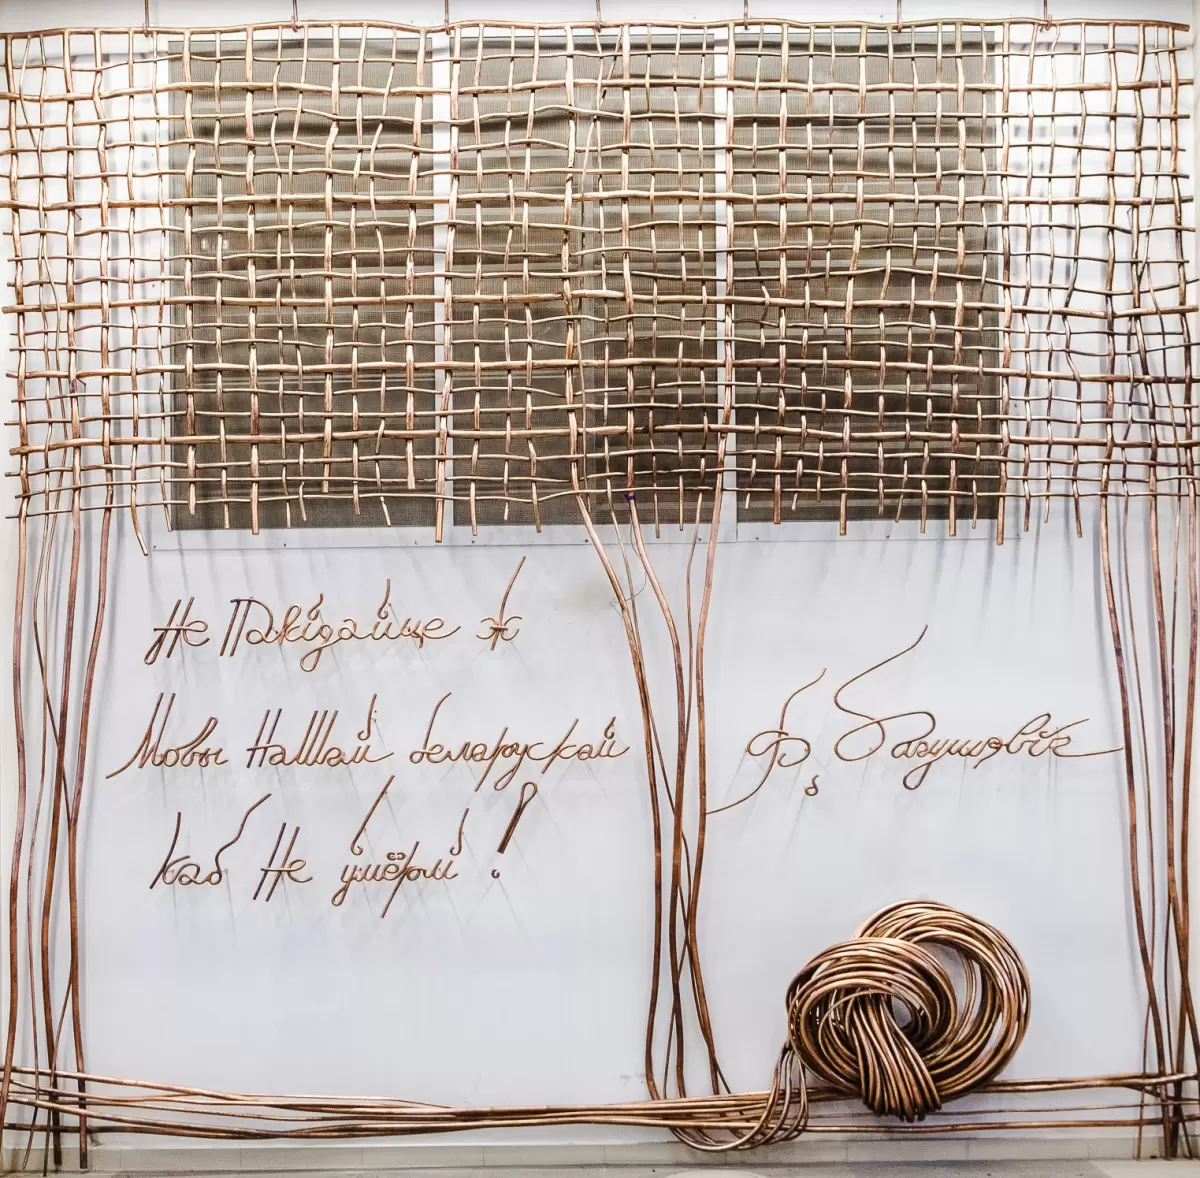 Не Пакідайце ж
Мовы Нашай беларускай
Каб Не ўмёрлі!
Ф. Багушэвіч